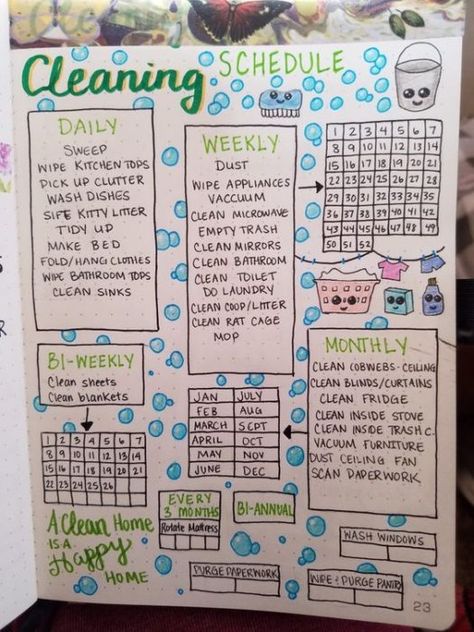 Cleaning SCHEDULE
DAILY
SWEEP
WIPE KITCHEN TOPS
PICK UP CLUTTER
WASH DISHES
SIFE KITTY LITTER
TIDY UP
MAKE BED
FOLD/HANG CLOTHES
WIPE BATHROOM TOPS
CLEAN SINKS
WEEKLY
DUST
WIPE APPLIANCES
VACCUUM
CLEAN MICROWAVE
EMPTY TRASH
CLEAN MIRRORS
CLEAN BATHROOM
CLEAN TOILET
DO LAUNDRY
CLEAN COOP/LITTER
CLEAN RAT CAGE
MOP
1 2 3 4 5 6 7
8 9 10 11 12 13 14
15 16 17 18 19 20 21
22 23 24 25 26 27 28
29 30 31 32 33 34 35
36 37 38 39 40 41 42
43 44 45 46 47 48 49
50 51 52
BI-WEEKLY
Clean sheets
Clean blankets
1 2 3 4 5 6 7
8 9 10 11 12 13 14
15 16 17 18 19 20 21
22 23 24 25 26
JAN JULY
FEB AUG
MARCH SEPT
APRIL OCT
MAY NOV
JUNE DEC
MONTHLY
CLEAN COBWEBS-CEILING
CLEAN BLINDS/CURTAINS
CLEAN FRIDGE
CLEAN INSIDE STOVE
CLEAN INSIDE TRASH C.
VACUUM FURNITURE
DUST CEILING FAN
SCAN PAPERWORK
A Clean Home
IS A
Happy
HOME
EVERY
3 MONTHS
Rotate Mattress
BI-ANNUAL
WASH WINDOWS
PURGE PAPERWORK
WIPE & PURGE PANTRY
23